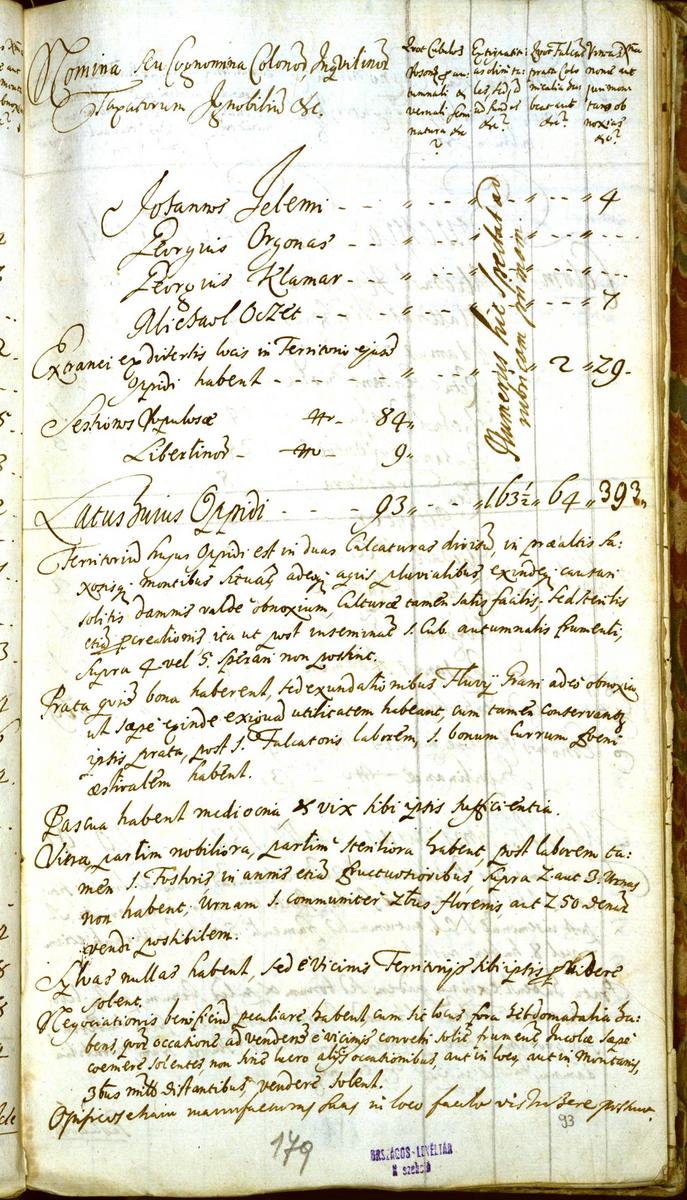 Nomina seu Cognomina Colonor, Inqvilinor
Taxatorum Ignobiliu &c.
Quot Cubulos
Poson
tumnali &
vernali sem
natura &c
?
tas
ad
&c?
Quot Falcas
prata Colo
nicalia
&c?
Vinea
none aut
jun mon
tano ob
noxias
&c?
Josannes Jelemi - - „ - - „ - - „ - - „ 4
Georgius Orgonas - - „ - - „ - - „ - - „ - - -
Georgius Klamar - - „ - - „ - - „ - - „ - - -
Michael Oczet - - - „ - - „ - - „ - - „ 7
Numerus hic spectat ad
rubricam primam
Extranei ex diversis locis in Territorio ejusd
Opidi habent - - - - - „ - - „ 2 „ 29.
Sessiones Populosae 84„
Libertinor 9„
Latus hujus Opidi - - - 93„ - - „ 163½„ 64 „ 393„
Territoriu hujus Opidi est in duas Calcaturas divisu, in praealtis sa:
xosisq montibus situatu, adeoq aquis pluvialibus, exindeq causari
solitis damnis valde obnoxium, Culturae tamen satis facilis, sed sterilis
etiam procreationis ita ut post inseminat 1. Cub. autumnalis frumenti,
supra 4 vel 5. sperari non possint.
Prata quide bona haberent, sed exundationibus Fluvij Grani adeo obnoxia
ut saepe exinde exiguam utilitatem habeant, cum tamen conservantur
ipsis prata, post 1. Falcatoris laborem, 1. bonum Currum foeni
aestivalem habent.
Pascua habent mediocria, & vix sibi ipsis sufficientia.
Vinea, partim nobiliora, partim steriliora habent, post laborem ta:
men 1. Fossoris in annis etiam fructuosioribus, supra 2 aut 3. Urnas
non habent, Urnam 1. communiter 2bus florenis, aut 2 50 denar
vendi possibilem.
Sylvas nullas habent, sed e Vicinis Territorijs sibi ipsis providere
solent.
Negociationis beneficiu peculiare habent, cum sit locus fora hebdomadalia ha:
bens, quor occasione ad vendendu e vicinijs convehi solitu frumentu Incolae saepe
coemere solentes, non sine lucro alijs occasionibus, aut in loco, aut in Montanis,
3bus mill distantibus, vendere solent.
Opifices etiam manufacturas suas in loco facile
93
179
ORSZÁGOS-LEVÉLTÁR
N szekció